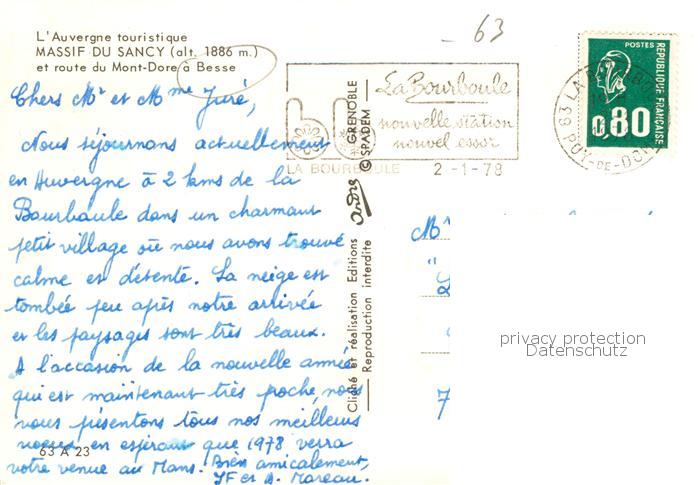 L'Auvergne touristique
MASSIF DU SANCY (alt. 1886 m.)
et route du Mont-Dore à Besse
63
Chers Mr et Mme Juré,
Nous séjournons actuellement
en Auvergne à 2 kms de la
Bourboule dans un charmant
petit village où nous avons trouvé
calme et détente. La neige est
tombée peu après notre arrivée
et les paysages sont très beaux.
A l'occasion de la nouvelle année
qui est maintenant très proche, nous
vous présentons tous nos meilleurs
voeux en espérant que 1978 verra
votre venue au Mans. Bien amicalement,
JF et A. Mareau.
63 A 23
La Bourboule
nouvelle station
nouvel essor
LA BOURBOULE
2-1-78
63 LA
PUY-DE-DOME
POSTES
REPUBLIQUE FRANÇAISE
0,80
GRENOBLE
© SPADEM
André
Cliché et réalisation Editions
Reproduction interdite
Mr
"
7
privacy protection
Datenschutz